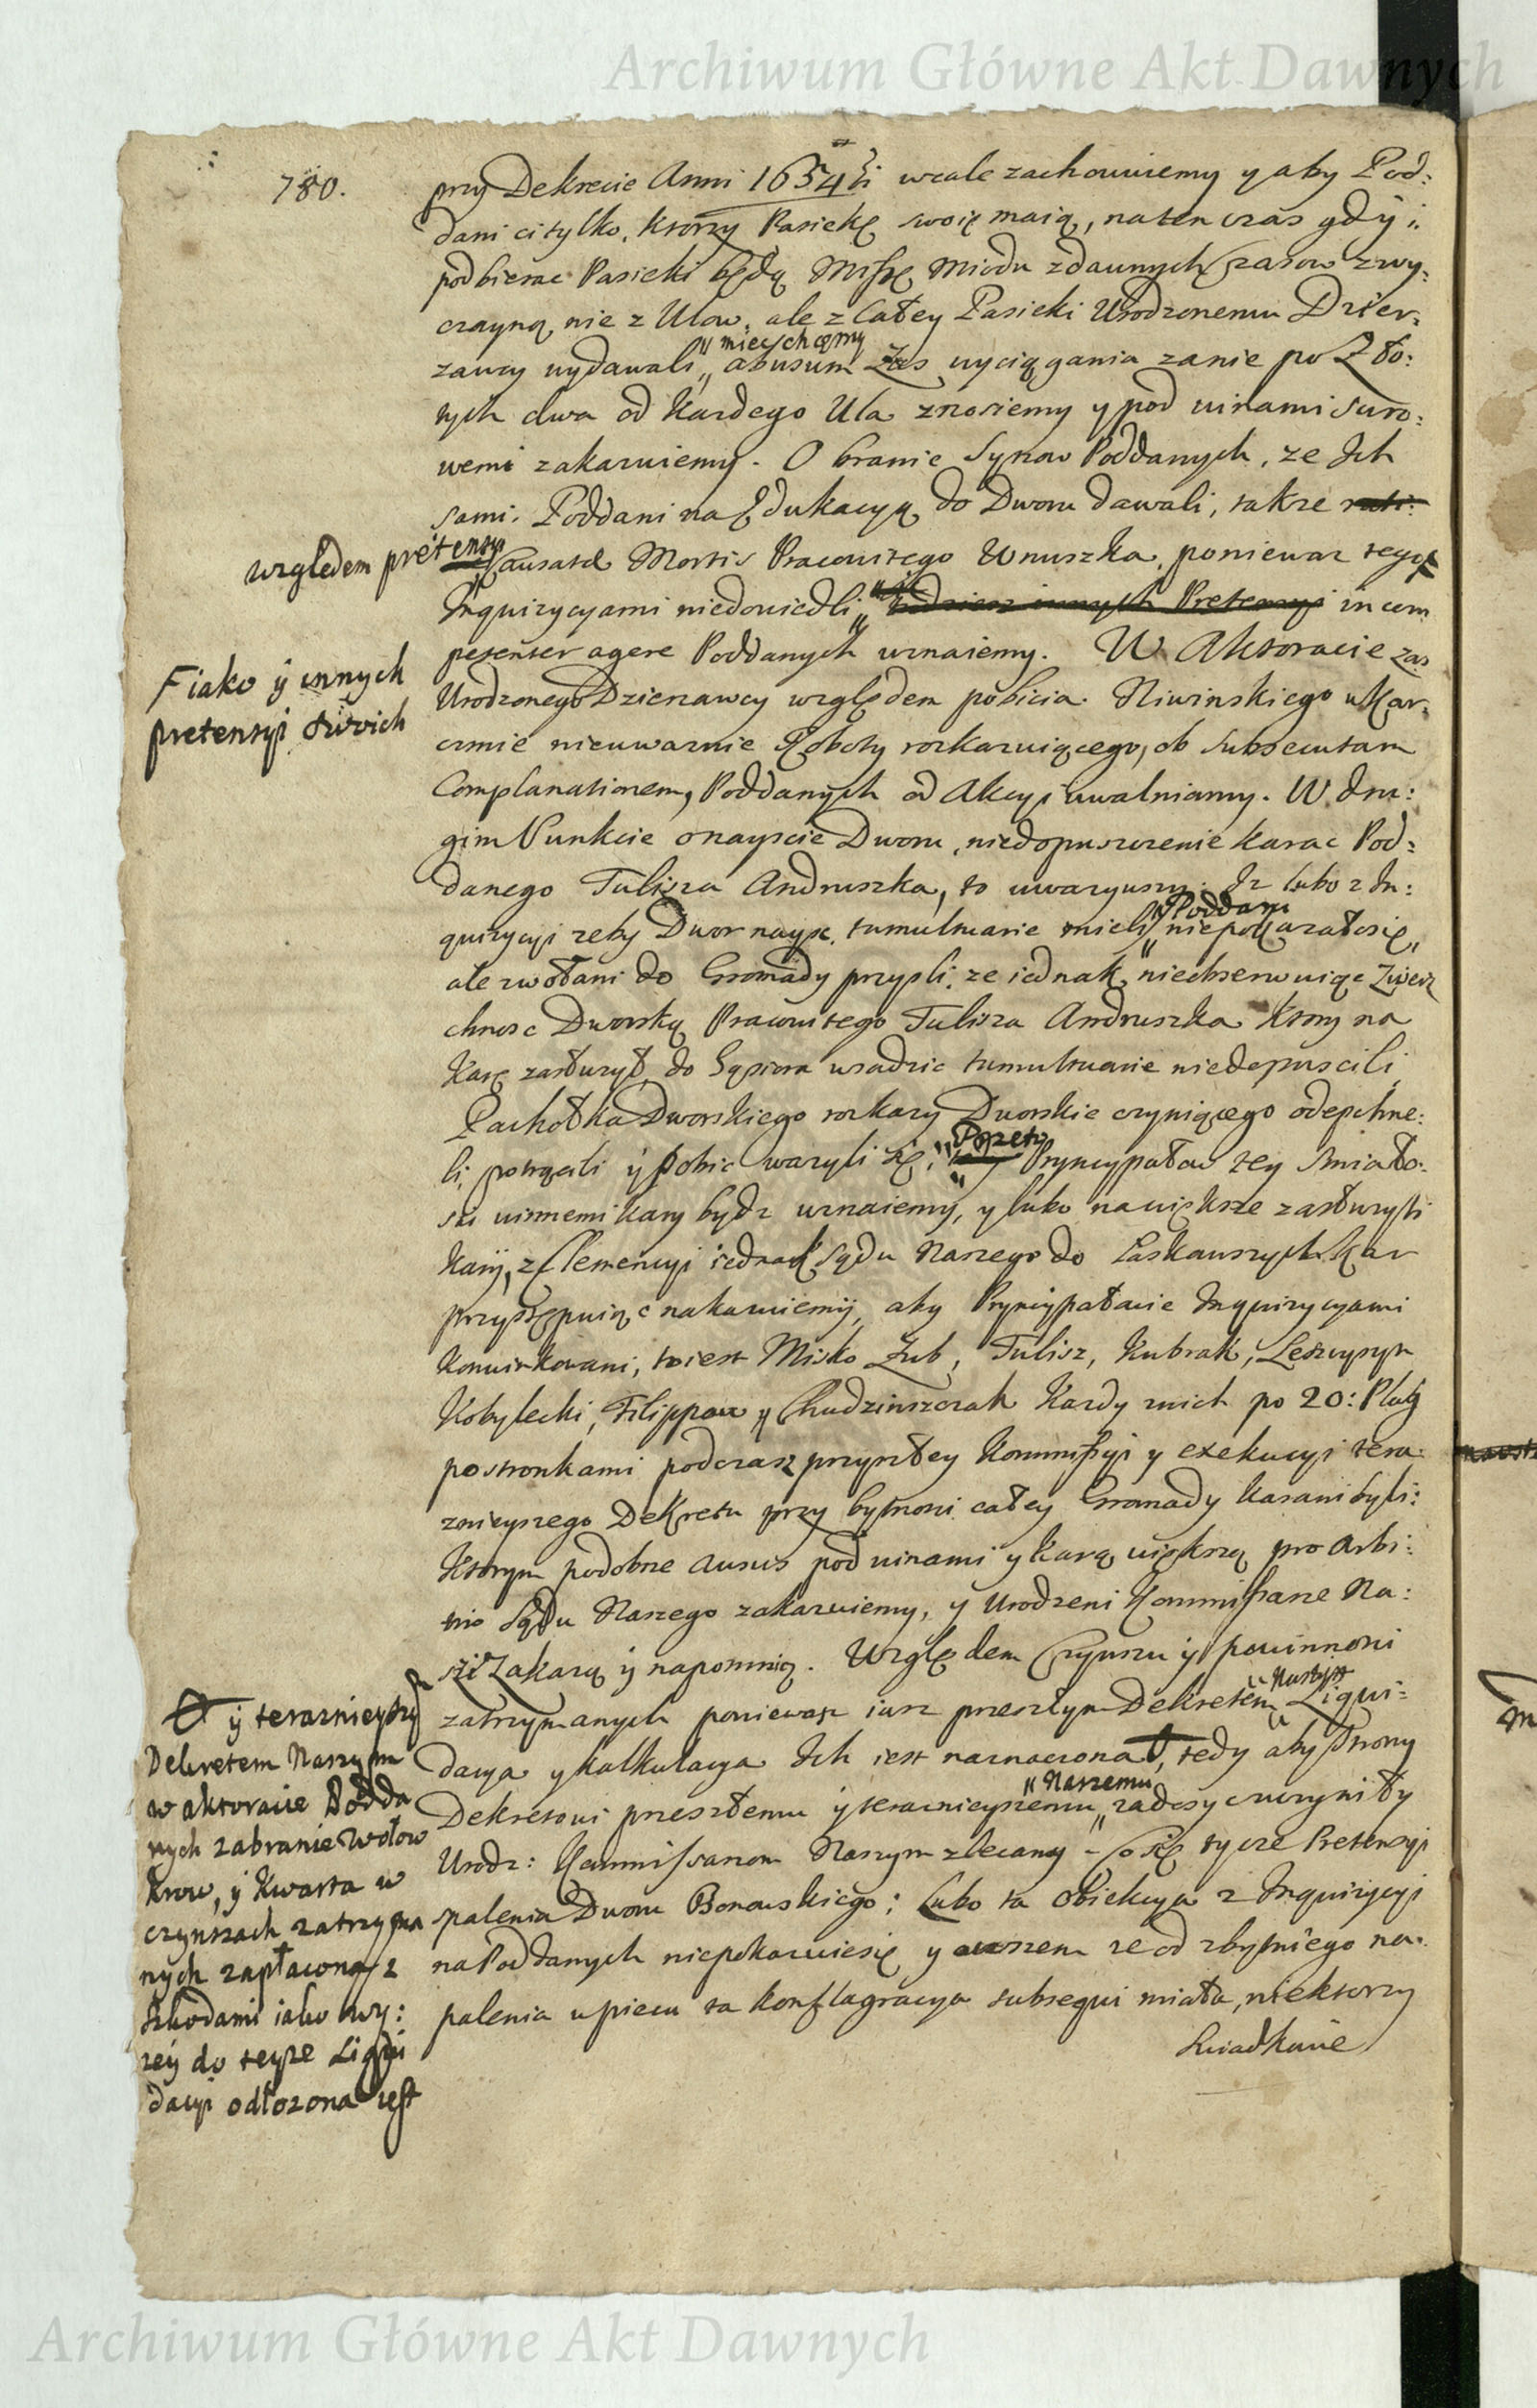 Archiwum Główne Akt Dawnych
780.
przy Dekrecie Anni 1654ti wcale zachowuiemy y aby Pod:
dani ci tylko, ktorzy Pasiekę swoię maią, naten czas gdy
podbierac Pasieki będą Misę Miodu zdawnych czasow zwy:
czayną nie z Ulow, ale z Całey Pasieki Urodzonemu Dzier:
y miec chcemy
zawcy wydawali, abusum zas wyciągania zanie po Zło:
tych dwa od Kazdego Ula znosiemy y pod winami suro:
wemi zakazuiemy. O branie Synow Poddanych, ze Ich
sami Poddani na Edukacyą do Dworu dawali, takze
względem pretensyi
Causatae Mortis Pracowitego Wnuszka, poniewaz tego
Inquizycyami niedowiedli, incom
petenter agere Poddanych uznaiemy. W Aktoracie zas
F iako y innych
pretensyi swoich
Urodzonego Dzierzawcy względem pobicia Niwinskiego w Kar:
czmie nieuwaznie Roboty rozkazuiącego, ob subsecutam
Complanationem, Poddanych od Akcyi uwalniamy. W dru:
gim Punkcie o nayscie Dworu, niedopuszczenie karac Pod:
danego Tulisza Andruszka, to uwazywszy: Iz lubo z In:
y Poddani
quizycyi zeby Dwor nayść tumultuarie mieli, niepokazałosię,
ale zwołani do Gromady przyśli, ze iednak nieobserwuiąc Zwierz
chnosc Dworską Pracowitego Tulisza Andruszka Ktory na
Karę zasłuzył, do Gąsiora wsadzic tumultuarie niedopuscili,
Pachołka Dworskiego rozkazy Dworskie czyniącego odepchne:
Przeto
li, potrącili y pobic wazyli się, Pryncypałow tey smiało:
sci winnemi kary bydz uznaiemy, y lubo nawiększe zasłuzyli
Kary, z Clemencyi iednak Sądu Naszego do Łaskawszych Kar
przystępuiąc nakazuiemy, aby Pryncypałowie Inquizycyami
konwinkowani, to iest Misko Zub, Tulisz, Kubrak, Leszczyszyn
Kobylecki, Filippow, y Chudzinszczak Kazdy znich po 20: Plag
postronkami podczas przyszłey Kommissyi y exekucyi tera:
znieyszego Dekretu przy bytnosci całey Gromady karani byli:
Ktorym podobne ausus pod winami y karą większą pro Arbi:
trio Sądu Naszego zakazuiemy, y Urodzeni Kommissarze Na:
si Zakazą y napomnią. Względem Czynszu y powinnosci
Naszym
zatrzymanych poniewasz iusz przeszłym Dekretem Liqui:
dacya y kalkulacya Ich iest naznaczona, tedy aby Strony
Naszemu
Dekretowi przeszłemu y teraznieyszemu zadosyc uczyniły
Urodz: Kommissarzom Naszym zlecamy - Co się tycze Pretensyi
spalenia Dworu Borowskiego; Lubo ta Obiekcya z Inquizycyi
na Poddanych niepokazuiesię y owszem ze od zbytniego na:
palenia w piecu ta konflagracya subsequi miała, niektorzy
Swiadkowie
y teraznieyszym
Dekretem Naszym
w aktoracie Podda
nych zabranie Wołow
Krow, y Kwarta w
czynszach zatrzyma
nych zapłacona z
Szkodami iako wy:
zey do teyze Liqui
dacyi odłozona iest
Archiwum Główne Akt Dawnych